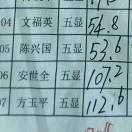 04 文福英 五显 54.8
05 陈兴国 五显 53.6
06 安世全 五显 107.2
07 方玉平 五显 112.6